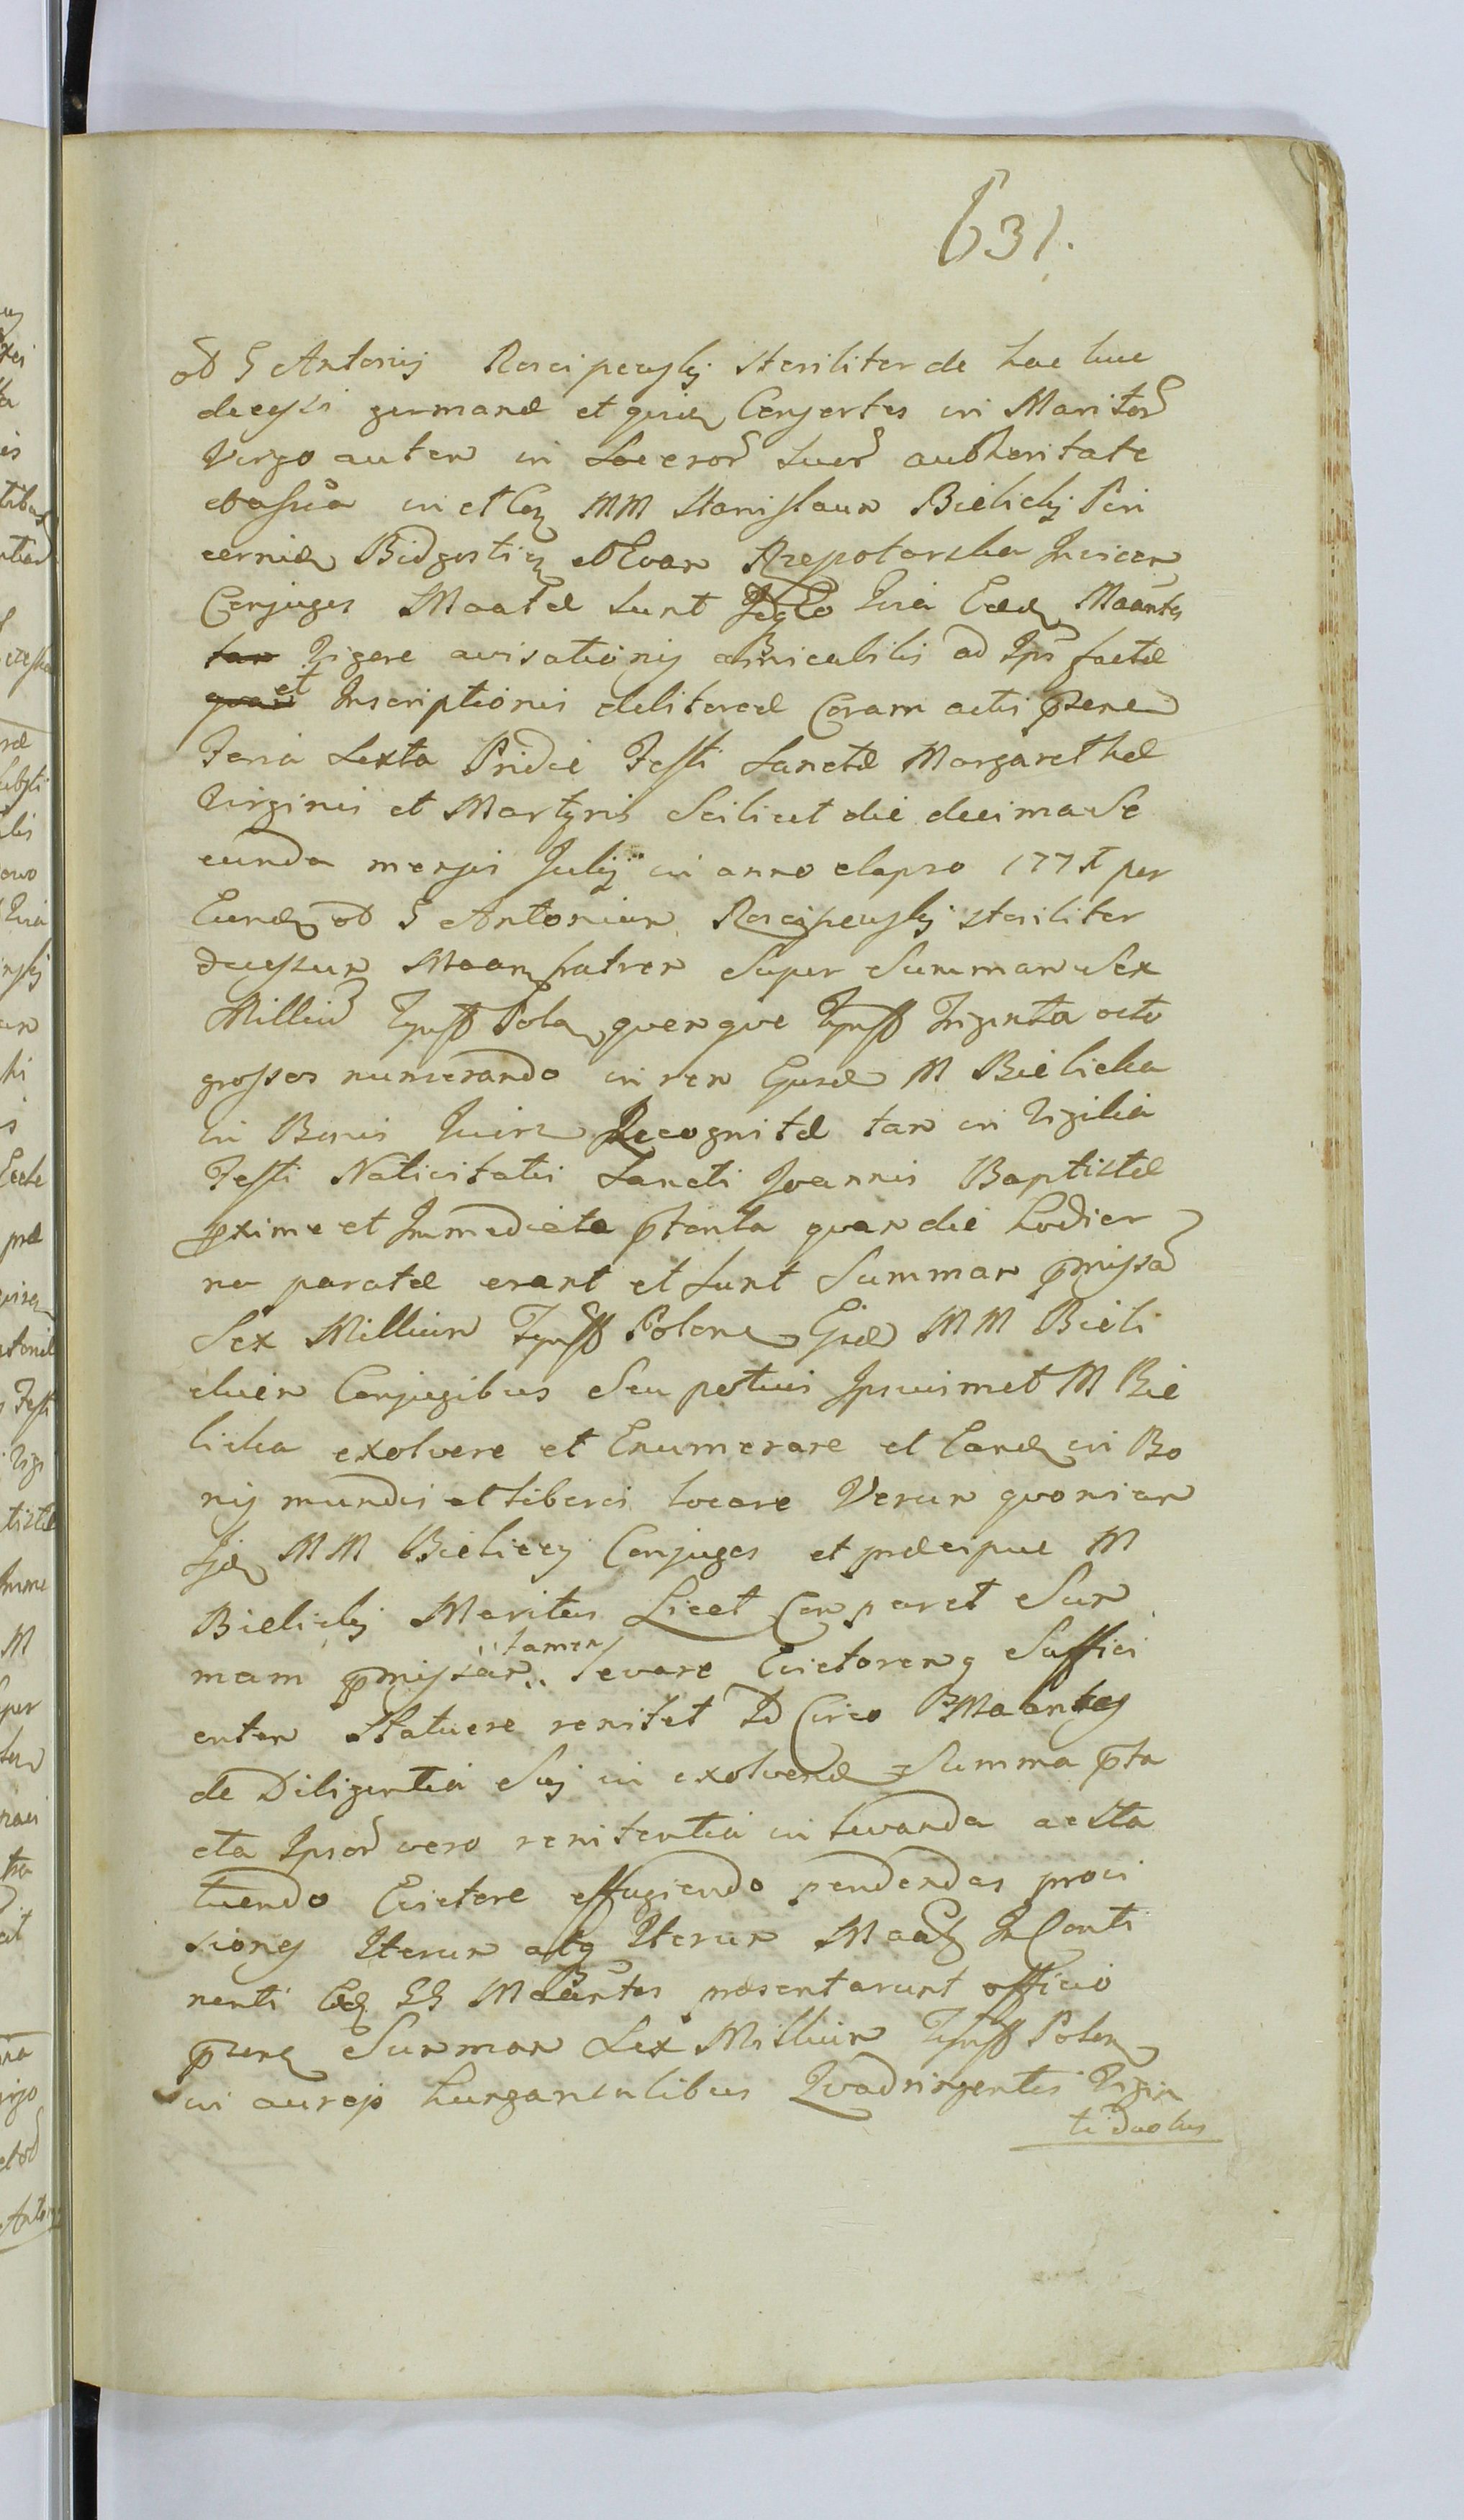 631.
Antonij Rościszewskj steriliter de hac luce
decessi germanæ et quidem Consortes in Maritor
Virgo autem in suor authoritate
et assña in et MM Stanislaum Bielickj Pin
cernæ Bidgostien et Evam Rzepotarska Invicem
Conjuges Maatæ sunt Quia Maantes
tam Vigore avisationis amicabilis ad Ips factæ
quam et Inscriptionis Coram actis pzen
Feria Sexta Pridie Festi Sanctæ Margarethæ
Virginis et Martyris Scilicet die decima Se
cunda mensis Julij in anno elapso 177 per
Eund Antonium Rościszewskj steriliter
decessum fratrem Super Summam Sex
Milliu Tynff Polo quemque Tynff Triginta octo
grossos numerando in rem Ejusd M Bielicka
in Bonis Recognitæ tam in Vigilia
Festi Nativitatis Sancti Joannis Baptistæ
pxime et Immediate ptenta quam die hodier
na paratæ erant et sunt Summam pmissa
Sex Millium Tynff Polon MM Bieli
ckim Conjugibus Seu potius Ipsimet M Bie
licka exolvere et Enumerare et Eand in Bo
nis mundis et liberis locare Verum quoniam
MM Bieliccy Conjuges et præcipue M
Bielickj Maritus Licet Comparet Sum
mam pmissam tamen levare Evictorem q Suffici
entem Statuere renitet Id Circo Maantes
de Diligentia Sui in exolvend Summa pta
cta Ipsor vero renitentia in levanda ac sta
tuendo Evictore effugiendo pendendas provi
siones Iterum atq Iterum In Conti
nenti Maantes præsentarunt officio
pzen Summam Sex Millium Tynff Polon
in aureis hungaricalibus Quadringentis Vigin
ti duobus